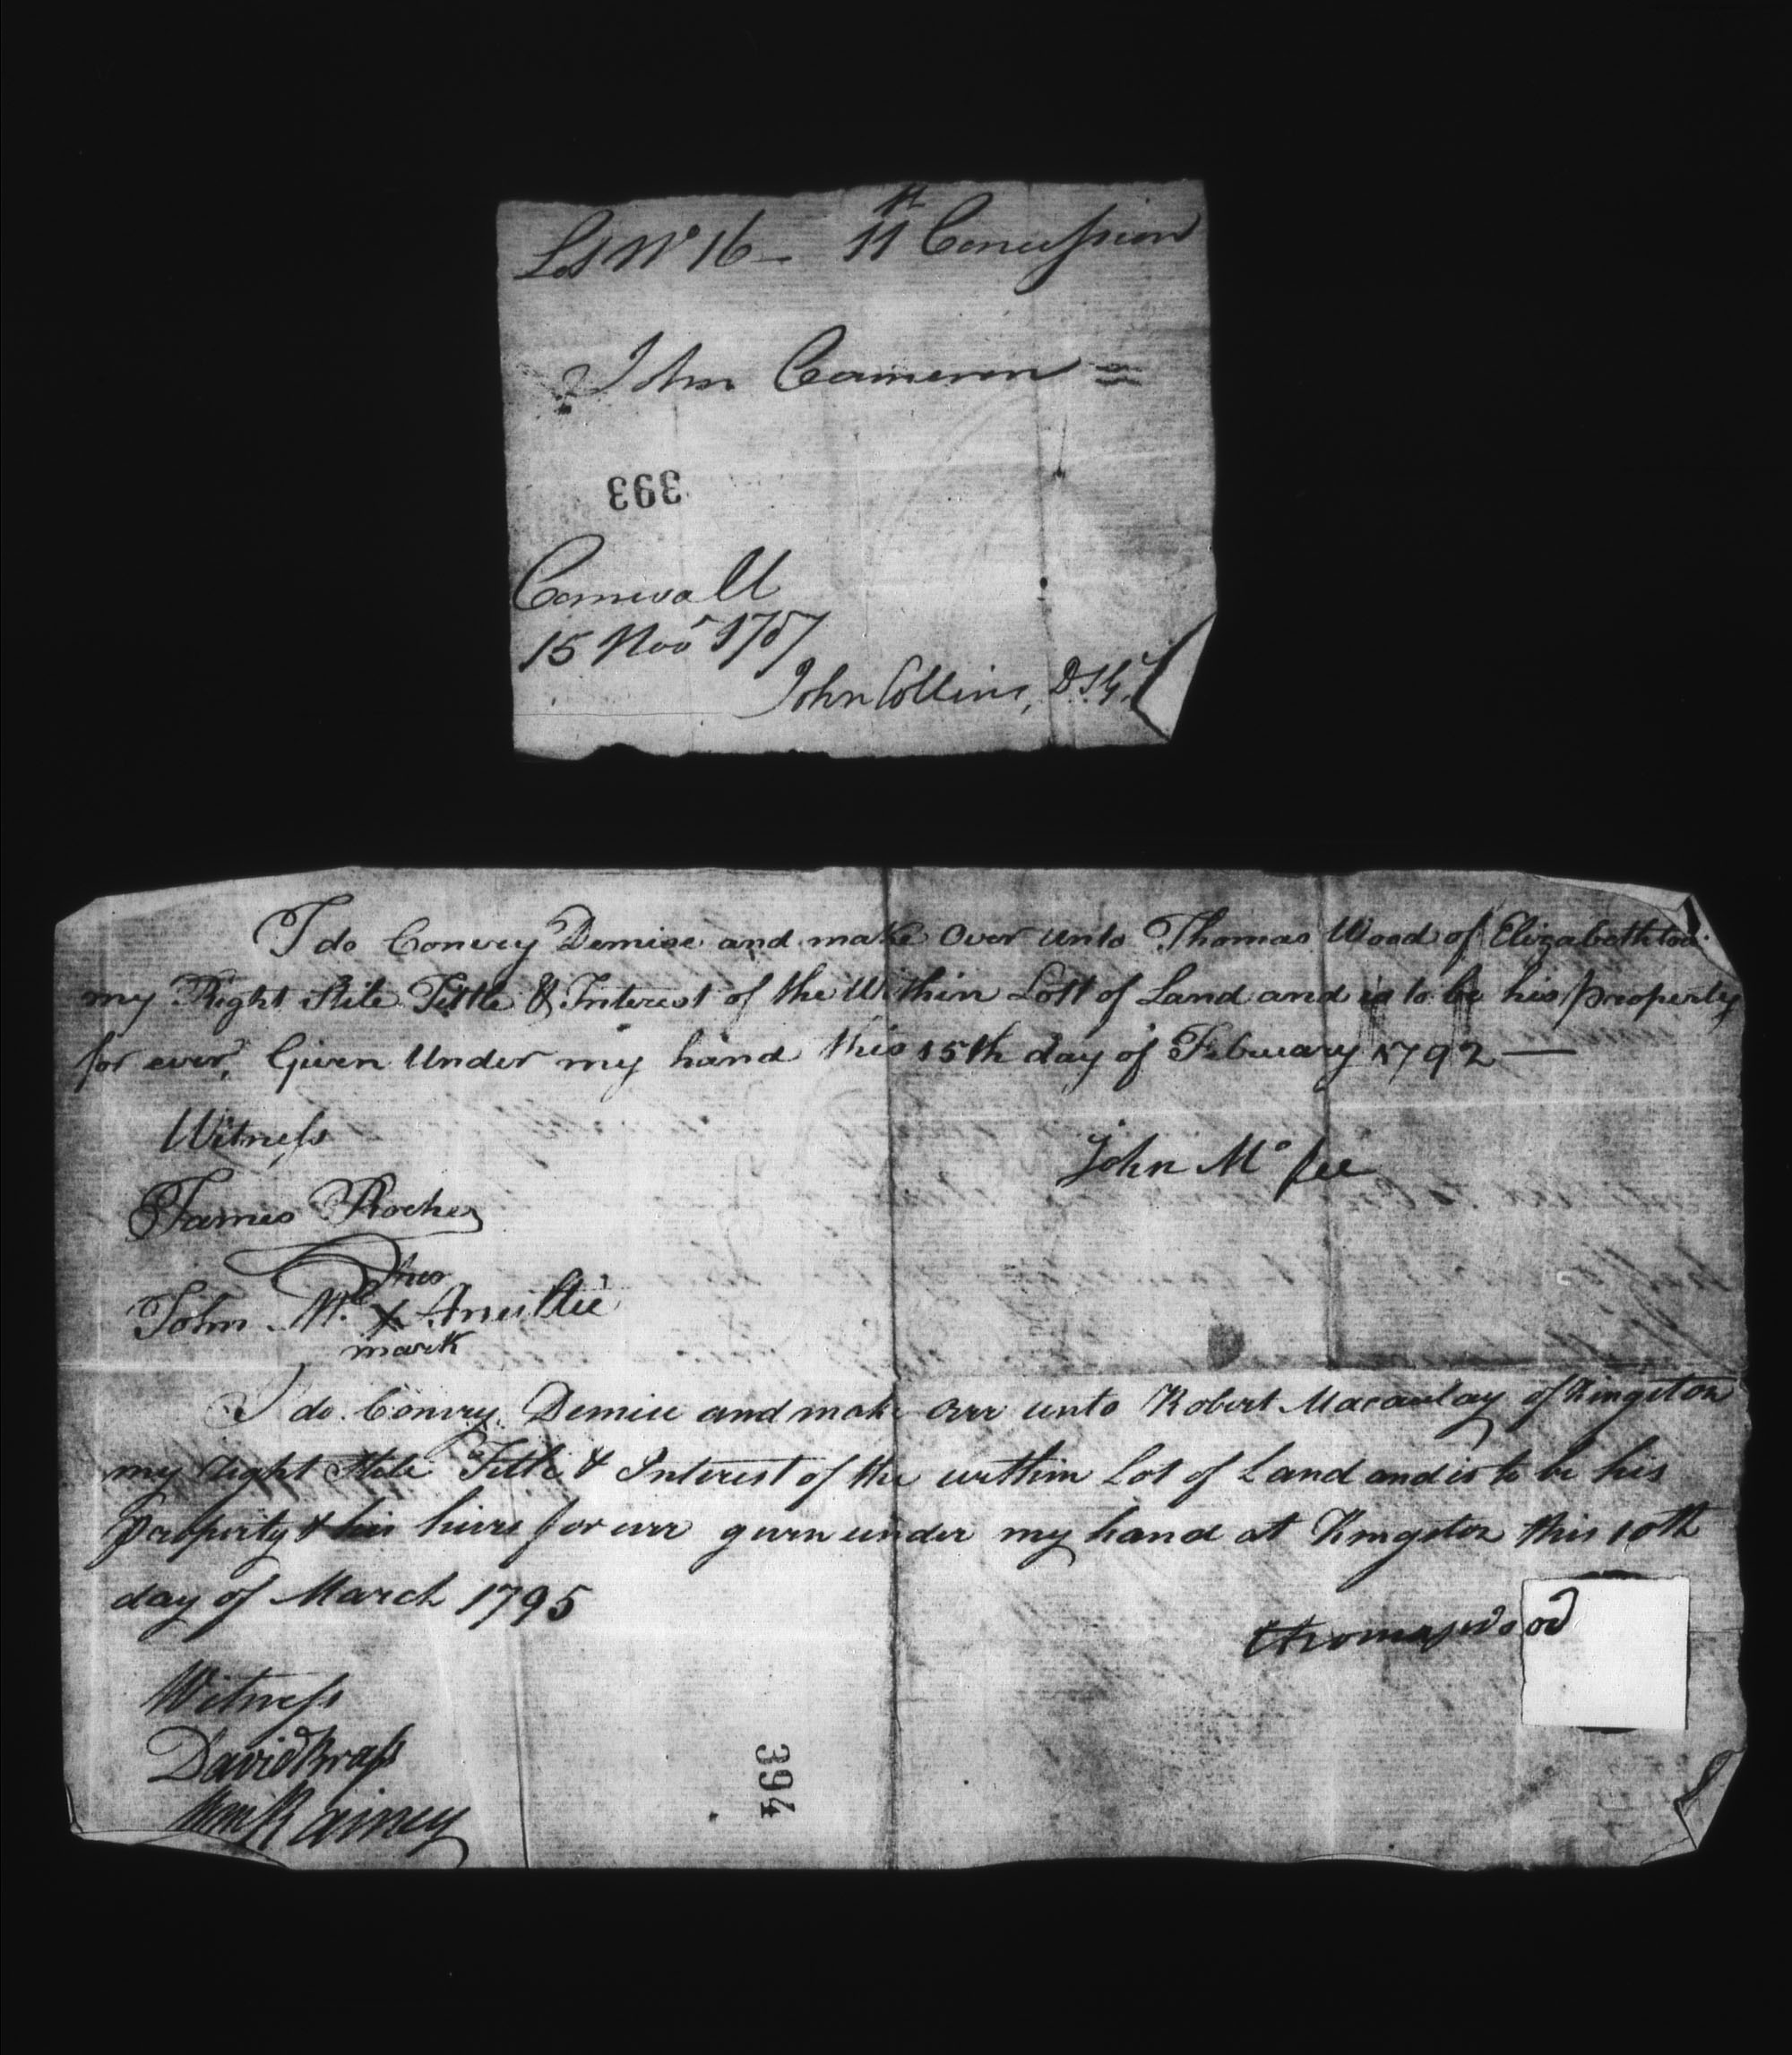 Lot No 16 - 11th Concession
John Cameron =
393
Cornwall
15 Novr 1787
John Collins, D.S.G.
I do Convey Demise and make Over unto Thomas Wood of Elizabethtow
my Right Stile Tittle & Interest of the Within Lott of Land and is to be his property
for ever, Given Under my hand this 15th day of February 1792 —
Witness
John Mc fee
James Roche
his
John Mc X
mark
I do Convey Demise and make over unto Robert Macaulay of Kingston
my Right Stile Title & Interest of the within Lot of Land and is to be his
property & his heirs for ever given under my hand at Kingston this 10th
day of March 1795
thomas wood
Witness
David Brass
Wm Rainey
394